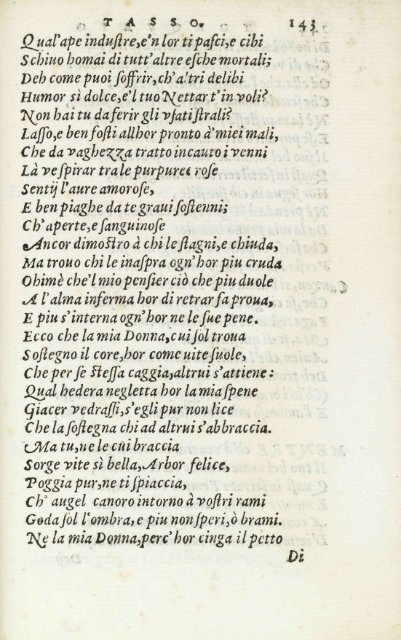 TASSO. 143
Qual'ape industre, e'n lor ti pasci, e cibi
Schiuo homai di tutt'altre esche mortali;
Deh come puoi soffrir, ch'altri delibi
Humor sì dolce, e'l tuo Nettar t'inuoli?
Non hai tu da ferir gli vsati strali?
Lasso, e ben fosti allhor pronto à miei mali,
Che da vaghezza tratto incauto i venni
Là ve spirar tra le purpuree rose
Sentij l'aure amorose,
E ben piaghe da te graui sostenni;
Ch'aperte, e sanguinose
Ancor dimostro à chi le stagni, e chiuda,
Ma trouo chi le inaspra ogn'hor piu cruda
Ohimè che'l mio pensier ciò che piu duole
A l'alma inferma hor di retrar fa proua,
E piu s'interna ogn'hor ne le sue pene.
Ecco che la mia Donna, cui sol troua
Sostegno il core, hor come uite suole,
Che per se stessa caggia, altrui s'attiene:
Qual hedera negletta hor la mia spene
Giacer vedrassi, s'egli pur non lice
Che la sostegna chi ad altrui s'abbraccia.
Ma tu, ne le cui braccia
Sorge vite sì bella, Arbor felice,
Poggia pur, ne ti spiaccia,
Ch' augel canoro intorno à vostri rami
Goda sol l'ombra, e piu non speri, ò brami.
Ne la mia Donna, perc'hor cinga il petto
Di